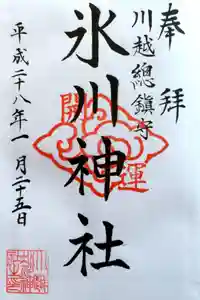 奉拝
川越總鎮守
氷川神社
開運
平成二十八年一月二十五日